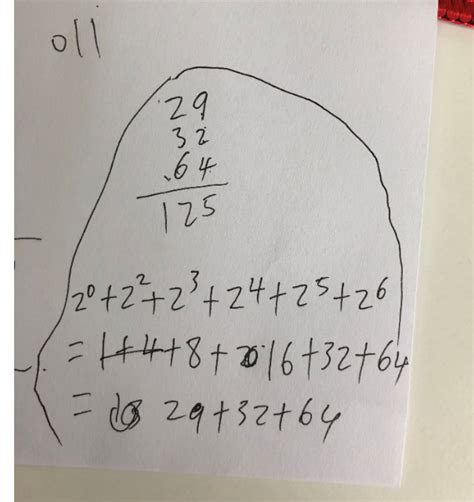 011
29
32
64
125
2⁰+2²+2³+2⁴+2⁵+2⁶
= 1+4+8+16+32+64
= 29+32+64